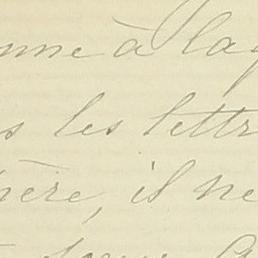 nne à laq
s les lettr
ère, il ne